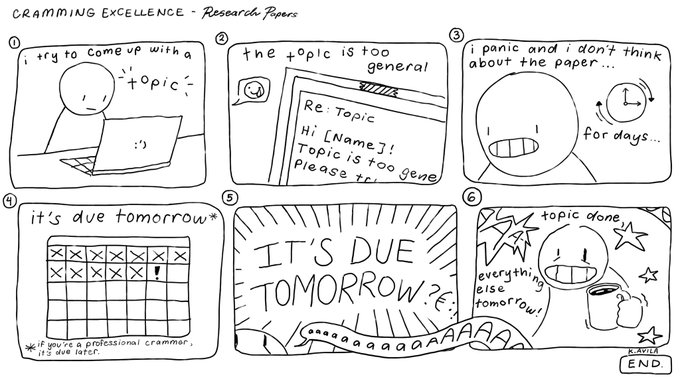 CRAMMING EXCELLENCE - Research Papers
1
i try to come up with a
topic
:')
2
the topic is too
general
Re: Topic
Hi [Name]!
Topic is too gene
Please tr
3
i panic and i don't think
about the paper...
for days...
4
it's due tomorrow*
!
*if you're a professional crammer,
it's due later.
5
IT'S DUE
TOMORROW?
aaaaaaaaaaAAAAAAA
6
topic done
everything
else
tomorrow!
K. AVILA
END.